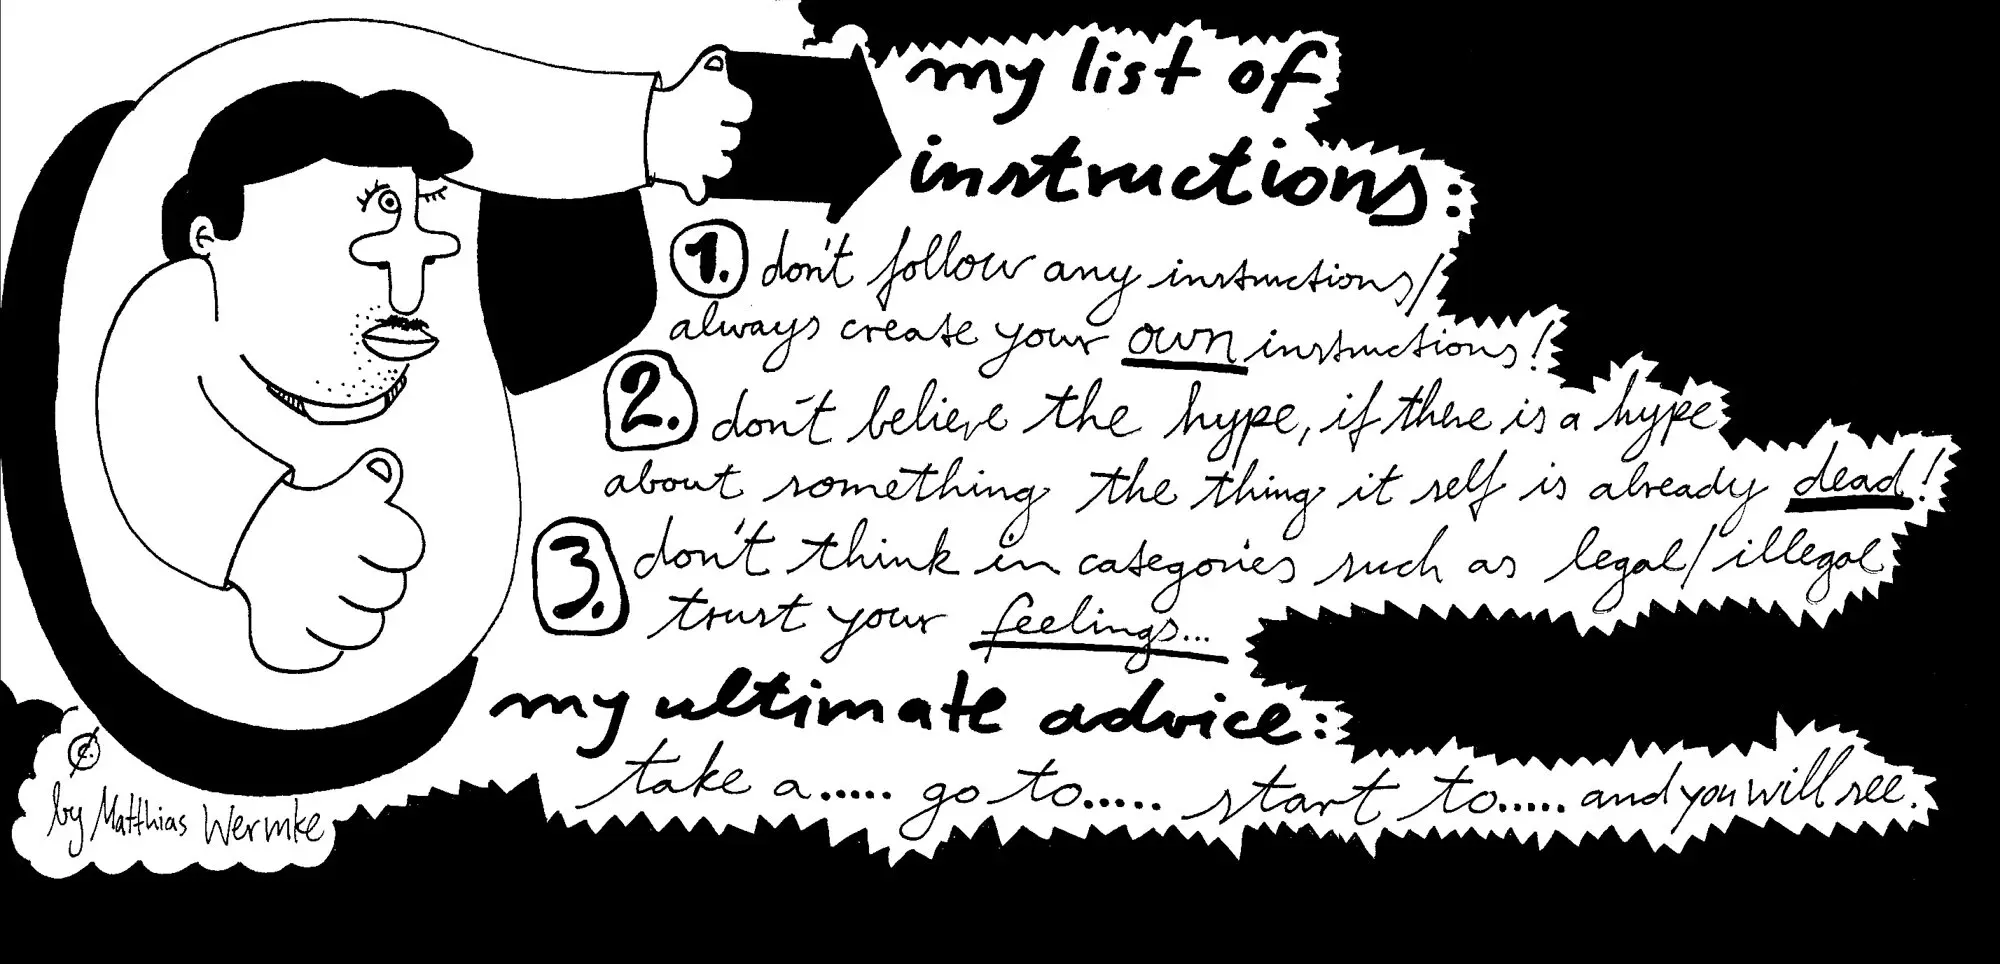 my list of
instructions:
1. don't follow any instructions/
always create your own instructions!
2. don't believe the hype, if there is a hype
about something the thing it self is already dead!
3. don't think in categories such as legal/illegal
trust your feelings...
my ultimate advice:
take a..... go to..... start to..... and you will see.
©
by Matthias Wermke